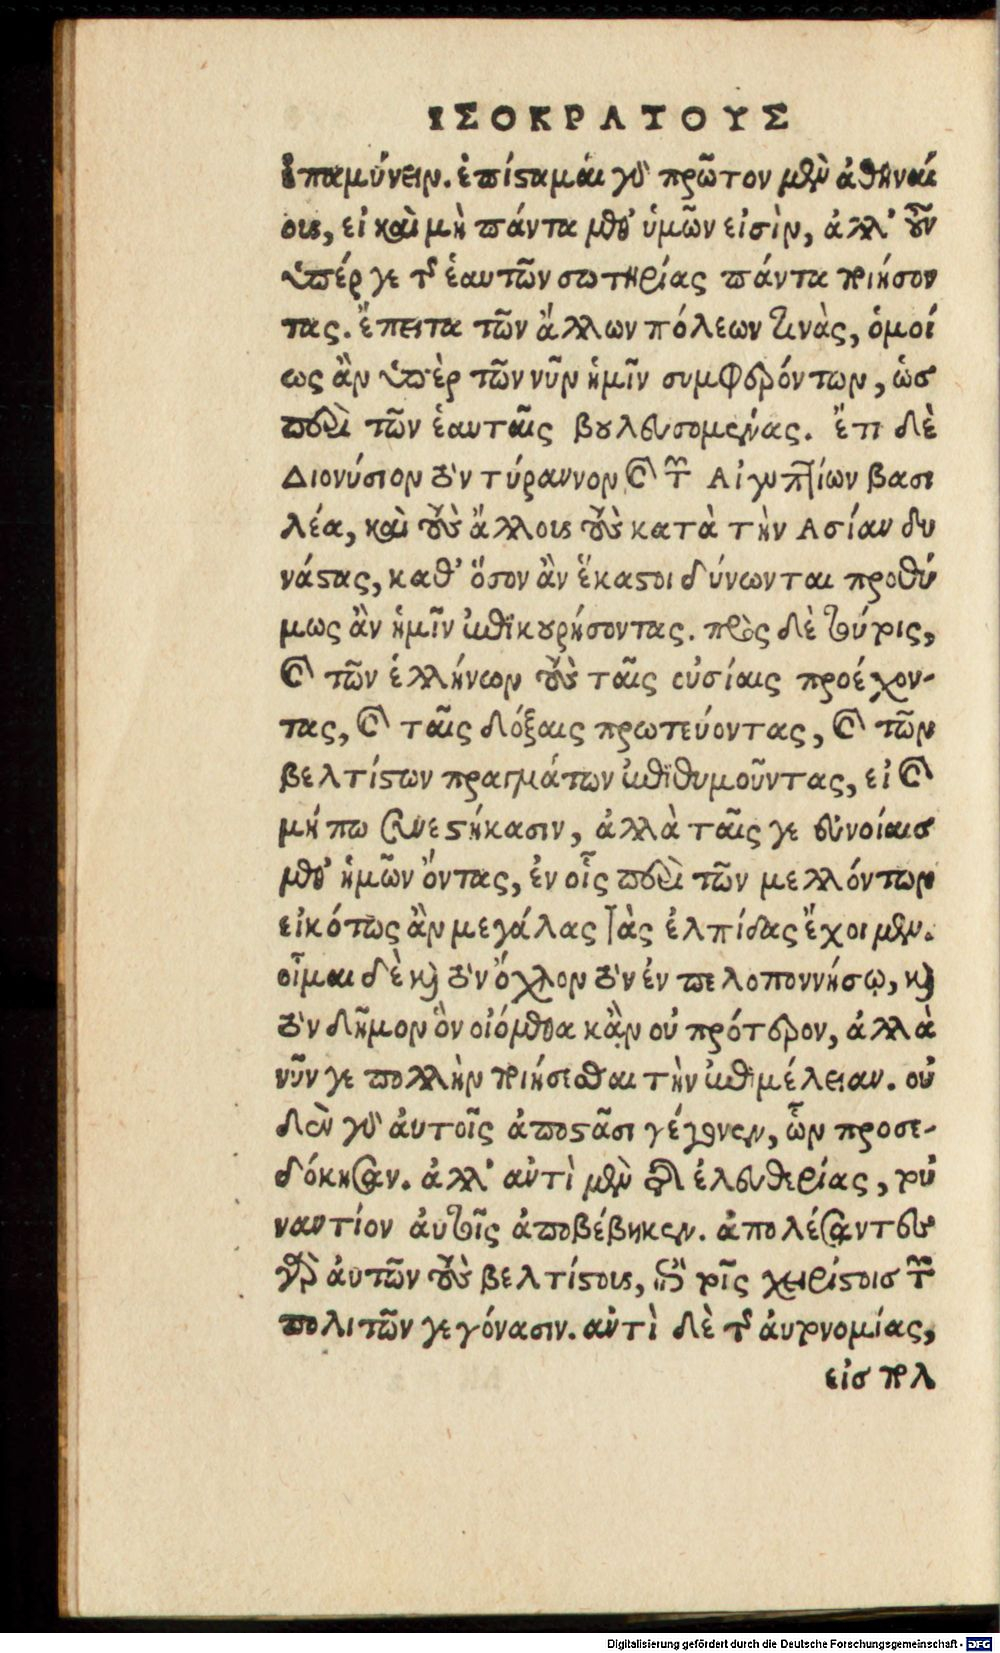 ΙΣΟΚΡΑΤΟΥΣ
ἐπαμύνειν. ἐπίσταμαι γὰρ πρῶτον μὲν ἀθηναί
ους, εἰ καὶ μὴ πάντα μεθ' ὑμῶν εἰσὶν, ἀλλ' οὖν
ὑπέρ γε τῆς ἑαυτῶν σωτηρίας πάντα ποιήσον
τας. ἔπειτα τῶν ἄλλων πόλεων τινὰς, ὁμοί
ως ἂν ὑπὲρ τῶν νῦν ἡμῖν συμφερόντων, ὡσ
περὶ τῶν ἑαυταῖς βουλευσομένας. ἔτι δὲ
Διονύσιον τὸν τύραννον καὶ τῶν Αἰγυπτίων βασι
λέα, καὶ τοὺς ἄλλους τοὺς κατὰ τὴν Ασίαν δυ
νάστας, καθ' ὅσον ἂν ἕκαστοι δύνωνται προθύ
μως ἂν ἡμῖν ἐπικουρήσοντας. πρὸς δὲ τούτοις,
καὶ τῶν ἑλλήνων τοὺς ταῖς οὐσίαις προέχον-
τας, καὶ ταῖς δόξαις πρωτεύοντας, καὶ τῶν
βελτίστων πραγμάτων ἐπιθυμοῦντας, εἰ καὶ
μή πω συνεστήκασιν, ἀλλὰ ταῖς γε εὐνοίαισ
μεθ' ἡμῶν ὄντας, ἐν οἷς περὶ τῶν μελλόντων
εἰκότως ἂν μεγάλας τὰς ἐλπίδας ἔχοιμεν.
οἶμαι δὲ καὶ τὸν ὄχλον τὸν ἐν πελοποννήσῳ, καὶ
τὸν δῆμον ὃν οἰόμεθα κἂν οὐ πρότερον, ἀλλὰ
νῦν γε πολλὴν ποιήσεσθαι τὴν ἐπιμέλειαν. οὐ
δὲν γὰρ αὐτοῖς ἀποστᾶσι γέγονεν, ὧν προσε-
δόκησαν. ἀλλ' αὐτὶ μὲν τῆς ἐλευθερίας, τοὐ
ναντίον αὐτοῖς ἀποβέβηκεν. ἀπολέσαντες
γὰρ αὐτῶν τοὺς βελτίστους, ἐπὶ τοῖς χειρίστοισ τῶν
πολιτῶν γεγόνασιν. αὐτὶ δὲ τῆς αὐτονομίας,
εἰσ πολ
Digitalisierung gefördert durch die Deutsche Forschungsgemeinschaft - DFG